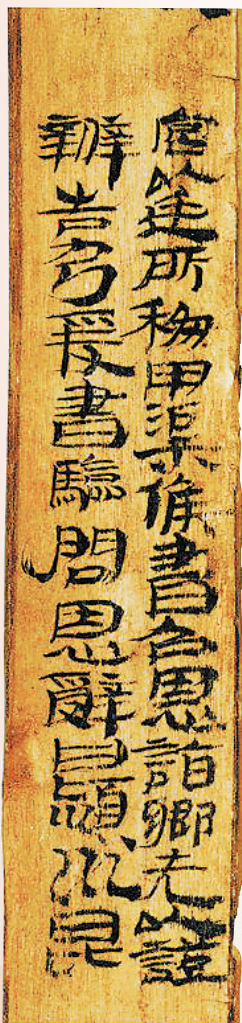 宮以廷所移甲渠候書召恩詣鄉先以證
辨告乃爰書驗問恩辭曰潁川昆